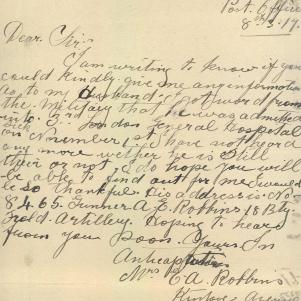 Post Office
8th 3. 17.
Dear Sir
I am writing to know if you
could kindly give me any information
as to my Husband. I got word from
the Military that he was admitted
into 3rd London General Hospital
sick
on November 1st I have not heard
any more wether he is still
their or not I do hope you will
be able to find out for me I would
be so thankful. His address is No-
8.4.65. Gunner A. E. Robbins 18 Bty
Field Artillery. Hoping to heard
from you Soon. Yours In
Anticapation
Mrs E A. Robbins